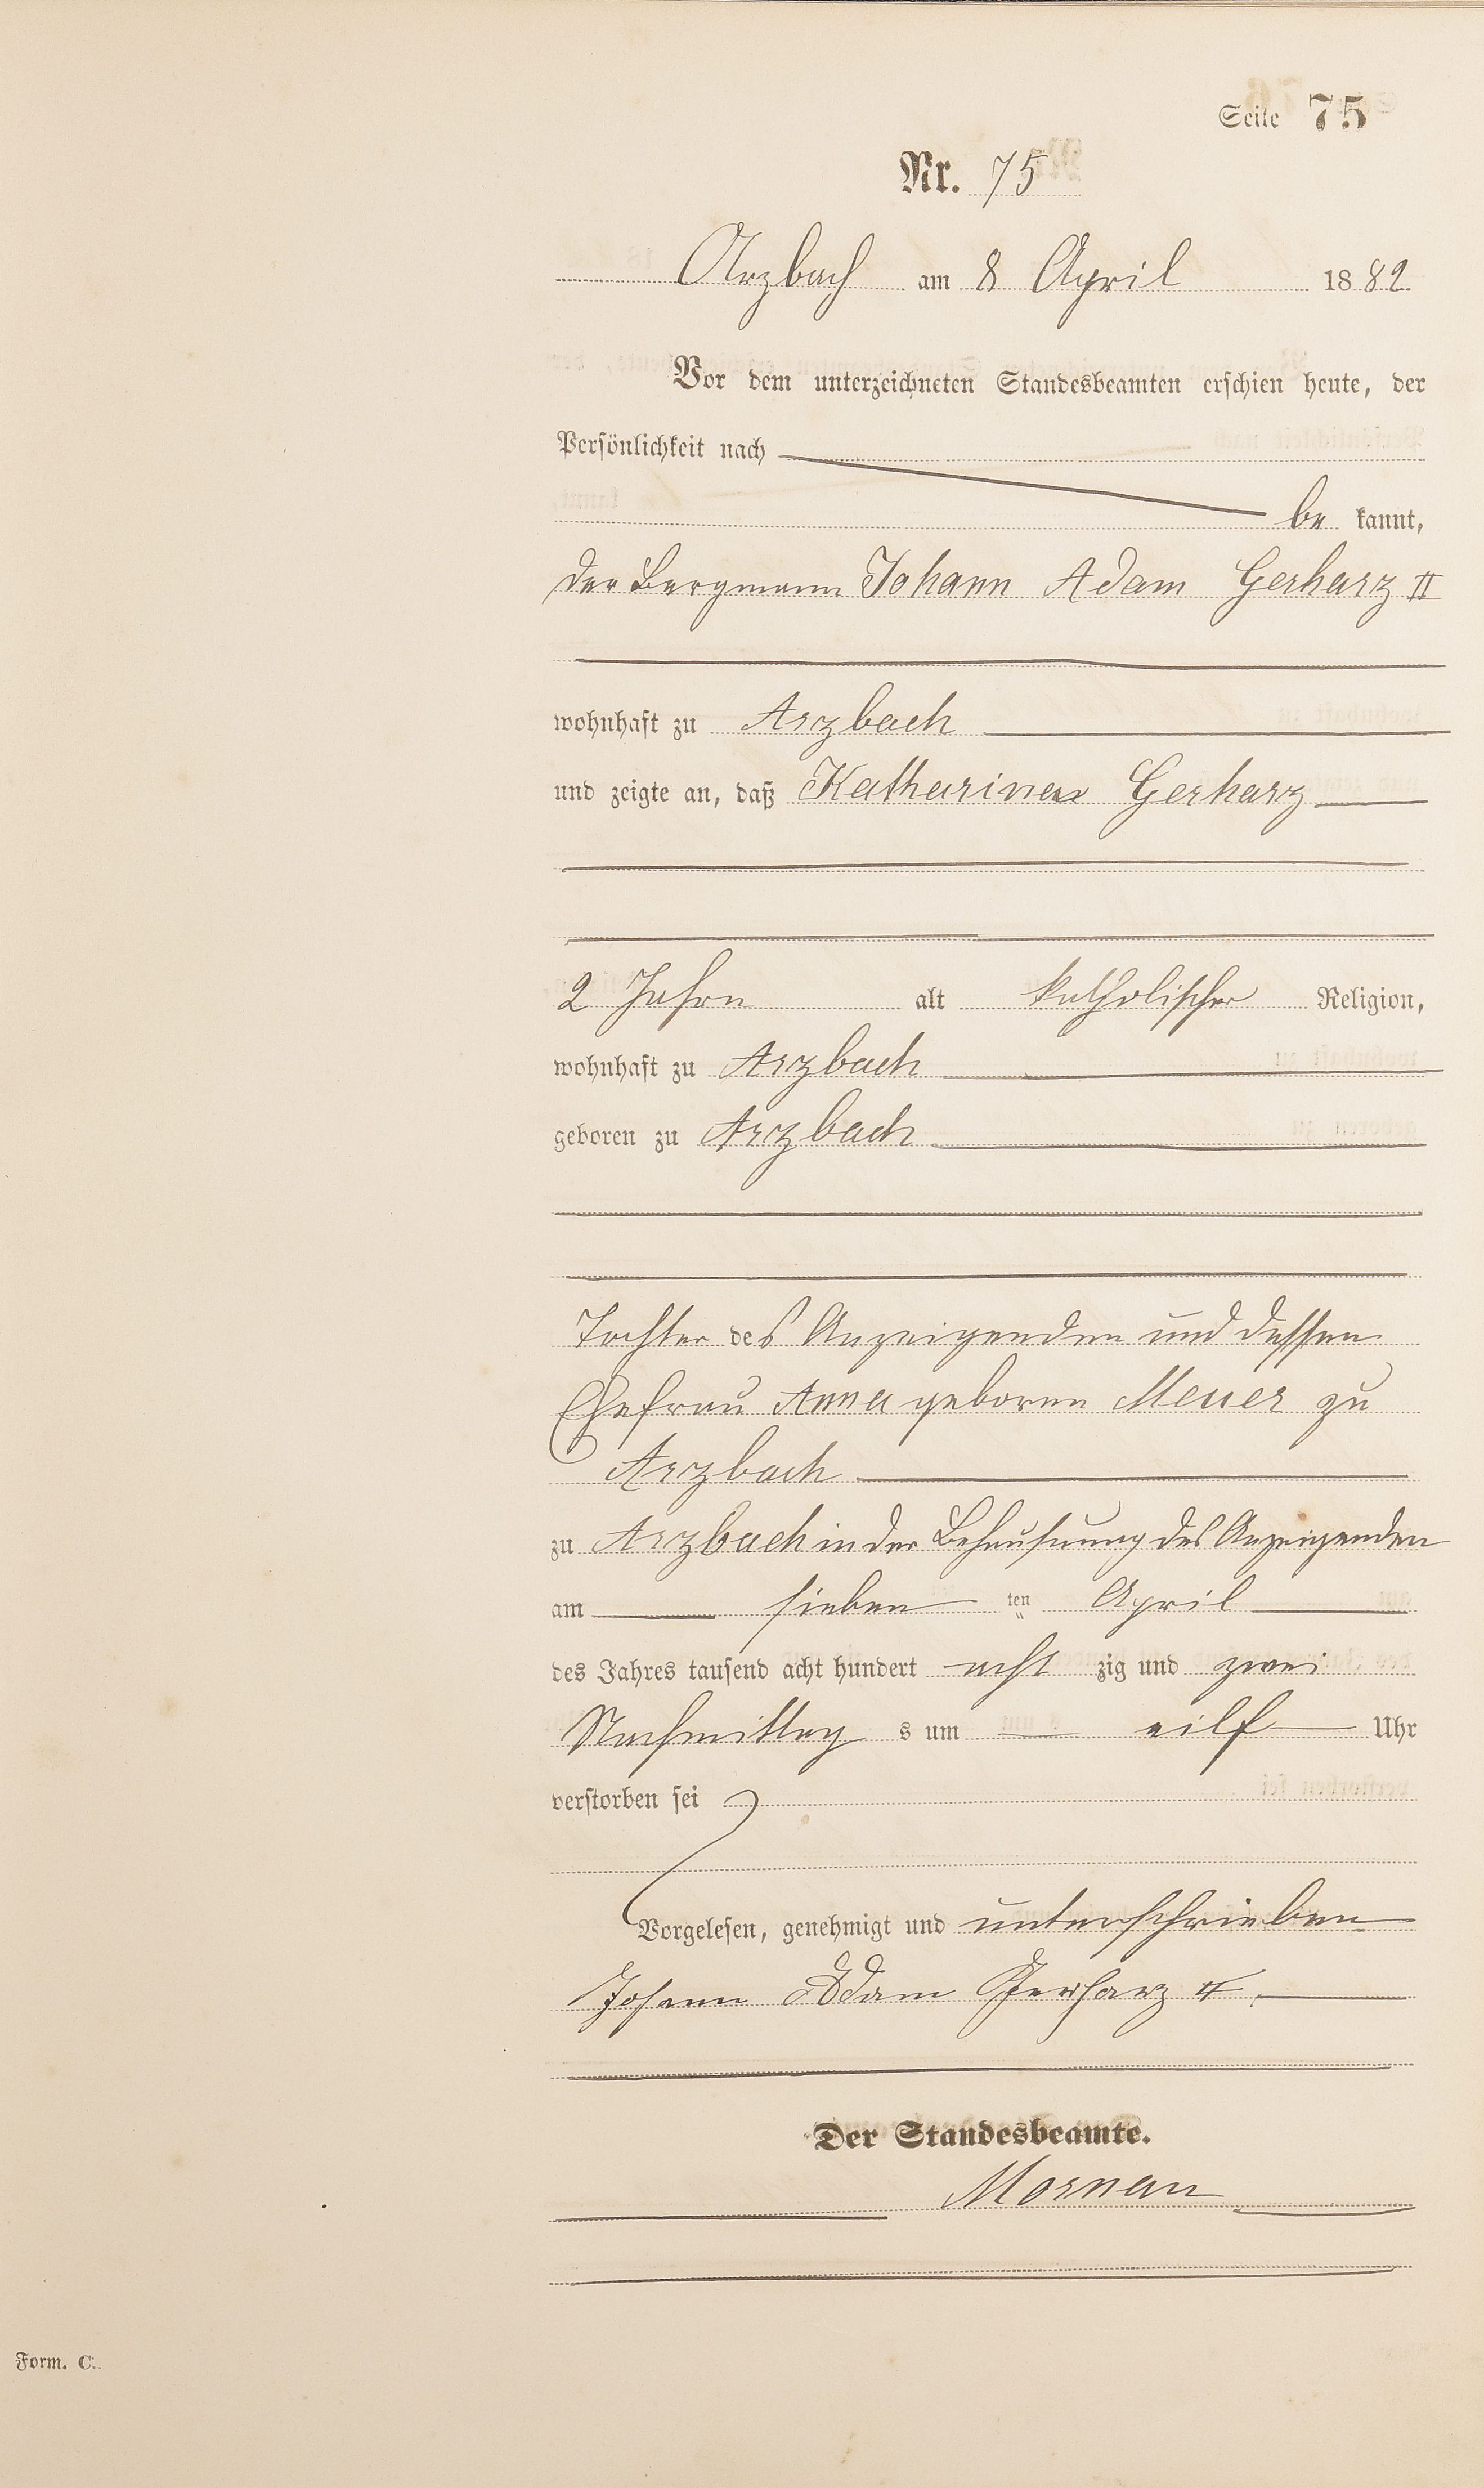 Seite 75
Nr. 75
Arzbach am 8 April 1882
Vor dem unterzeichneten Standesbeamten erschien heute, der
Persönlichkeit nach
be kannt,
der Bergmann Johann Adam Gerharz II
wohnhaft zu Arzbach
und zeigte an, daß Katharina Gerharz
2 Jahre alt katholischer Religion,
wohnhaft zu Arzbach
geboren zu Arzbach
Tochter des Anzeigenden und dessen
Ehefrau Anna geborene Meuer zu
Arzbach
zu Arzbach in der Behausung des Anzeigenden
am sieben ten April
des Jahres tausend acht hundert acht zig und zwei
Nachmittag s um eilf Uhr
verstorben sei
Vorgelesen, genehmigt und unterschrieben
Johann Adam Gerharz II.
Der Standesbeamte.
Form. C.